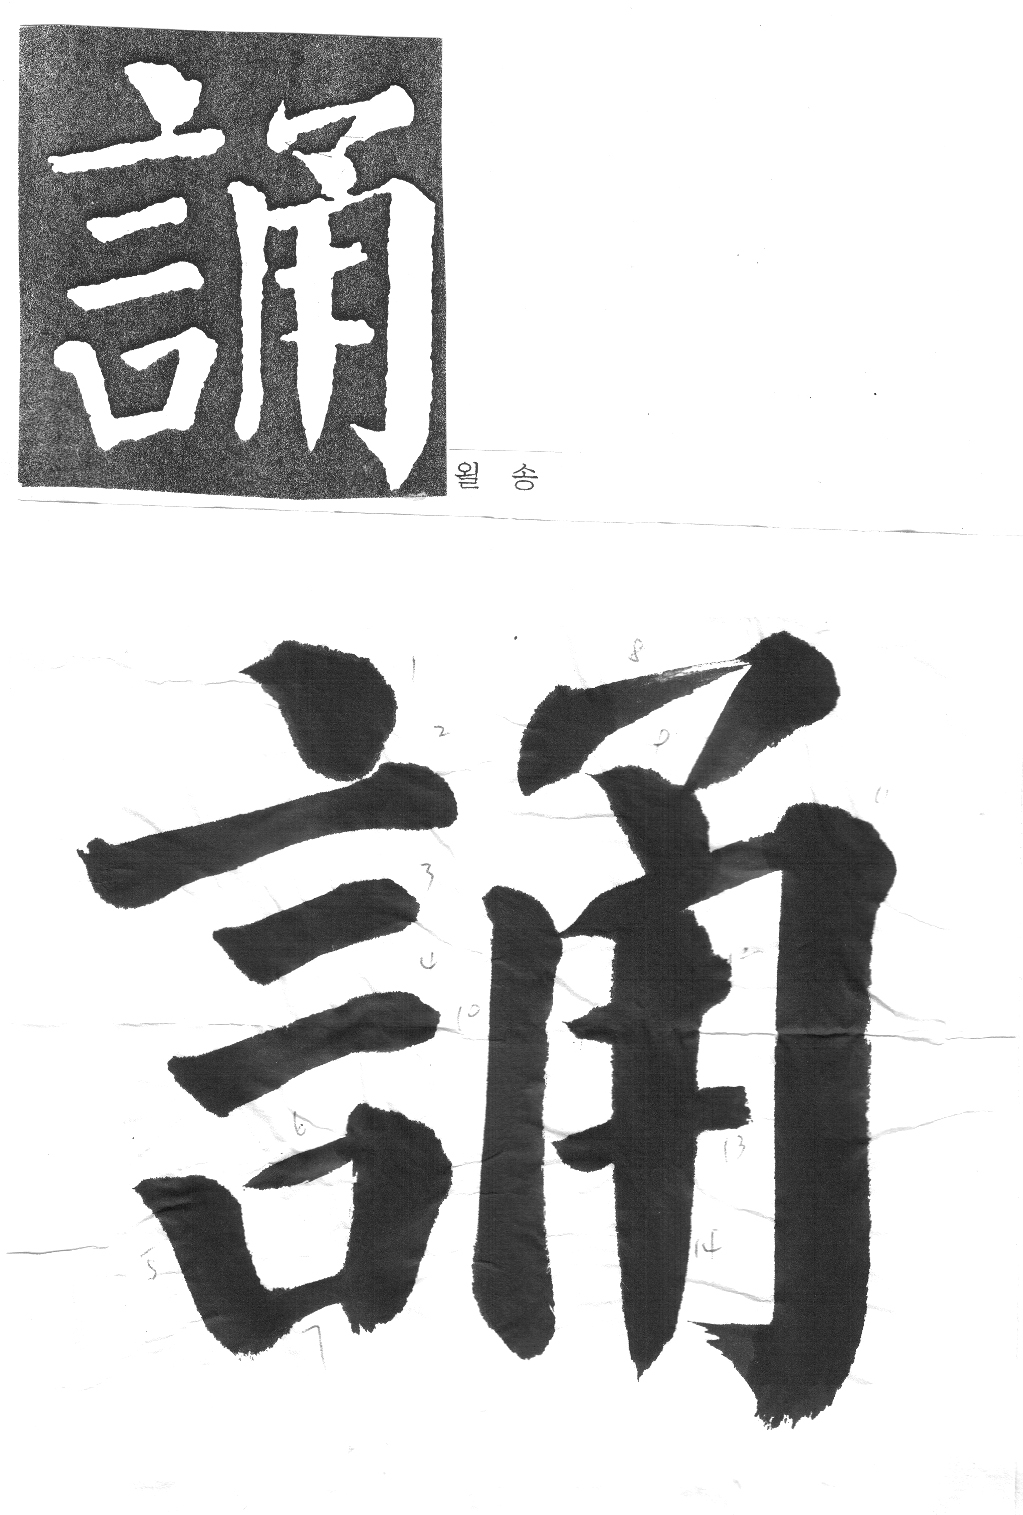 誦
윌 송
誦
1
2
3
4
5
6
7
8
9
10
11
12
13
14